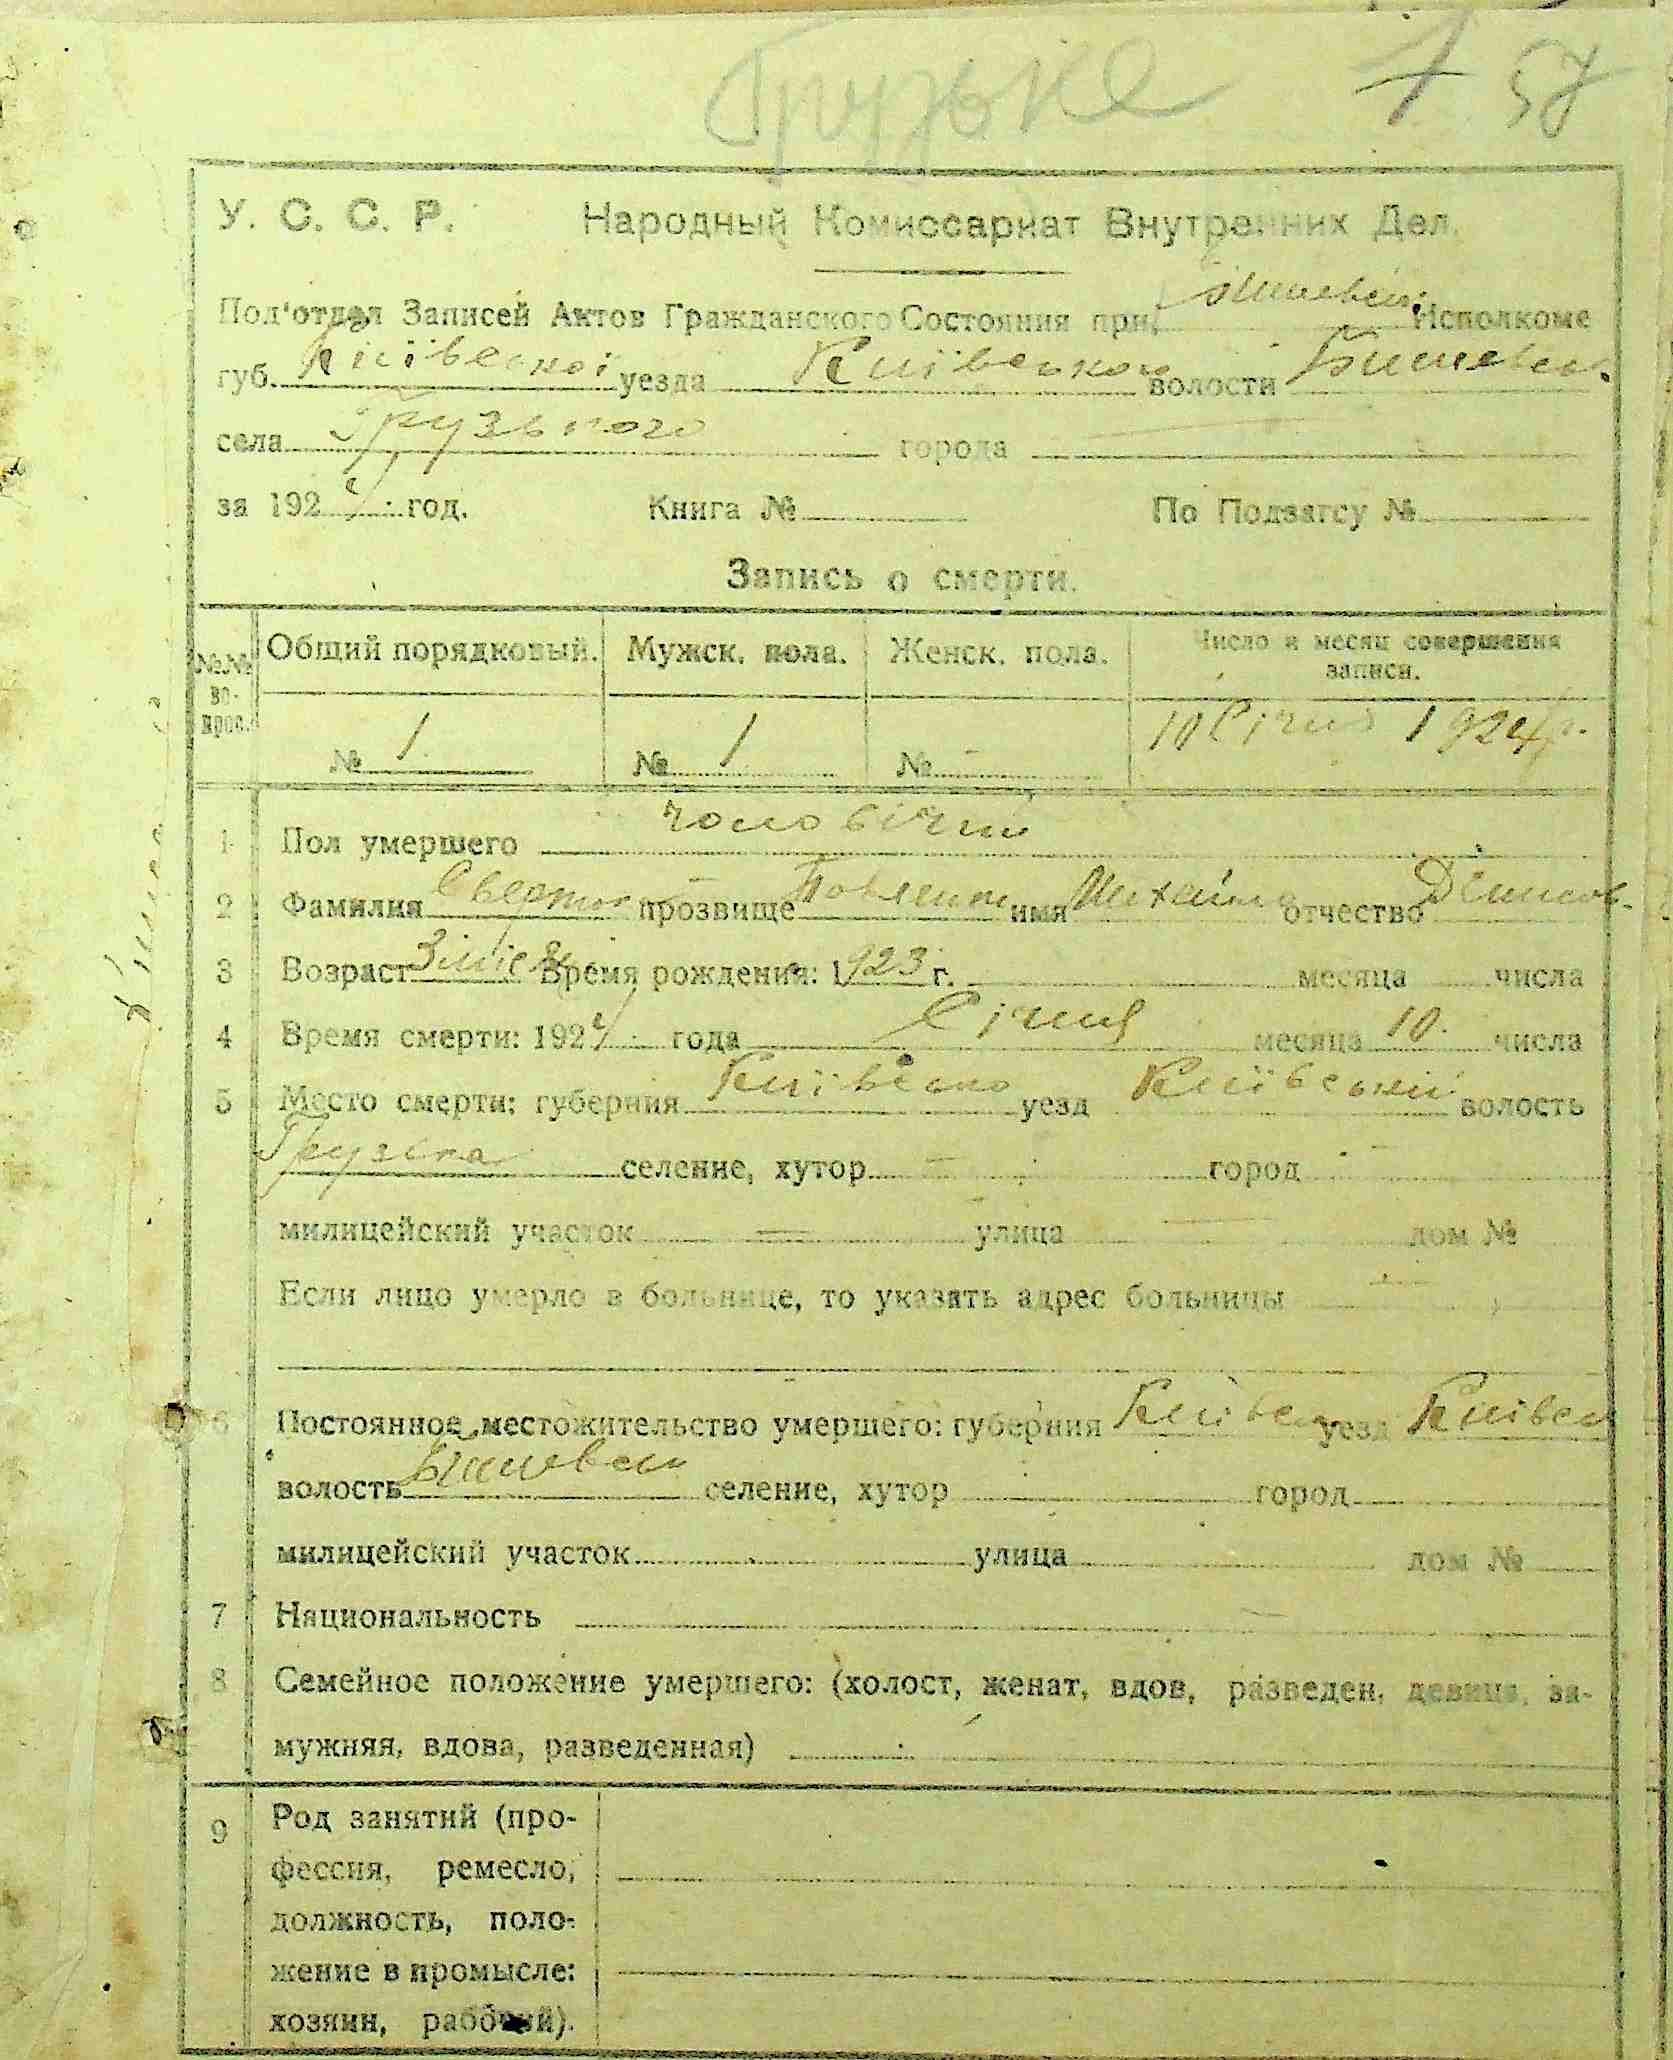 Грузьке 1 57
У. С. С. Р. Народный Комиссариат Внутренних Дел.
Под'отдел Записей Актов Гражданского Состояния при Исполкоме
губ. Київської уезда Київського волости Бишевськ.
села Грузького города
за 1924 год. Книга № По Подзагсу №
Запись о смерти.
№№ вопрос. Общий порядковый. Мужск. пола. Женск. пола. Число и месяц совершения записи.
№ 1 № 1 № - 10 Січня 1924 р.
1 Пол умершего чоловічий
2 Фамилия прозвище имя Михайло отчество Денисов.
3 Возраст Время рождения: 1923 г. месяца числа
4 Время смерти: 1924 года Січня месяца 10 числа
5 Место смерти: губерния Київсько уезд Київський волость
Грузька селение, хутор — город —
милицейский участок — улица — дом №
Если лицо умерло в больнице, то указать адрес больницы —
6 Постоянное местожительство умершего: губерния Київськ уезд Київськ
волость Бишевськ селение, хутор город
милицейский участок улица дом №
7 Национальность
8 Семейное положение умершего: (холост, женат, вдов, разведен, девица, за-
мужняя, вдова, разведенная)
9 Род занятий (про-
фессия, ремесло,
должность, поло-
жение в промысле:
хозяин, рабочий).